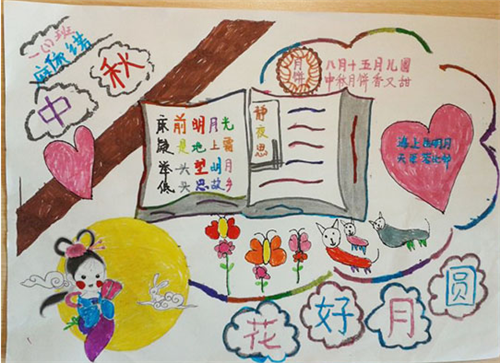 中秋
月饼
八月十五月儿圆
中秋月饼香又甜
静夜思
床前明月光
疑是地上霜
举头望明月
低头思故乡
海上明月
天涯共此时
花好月圆